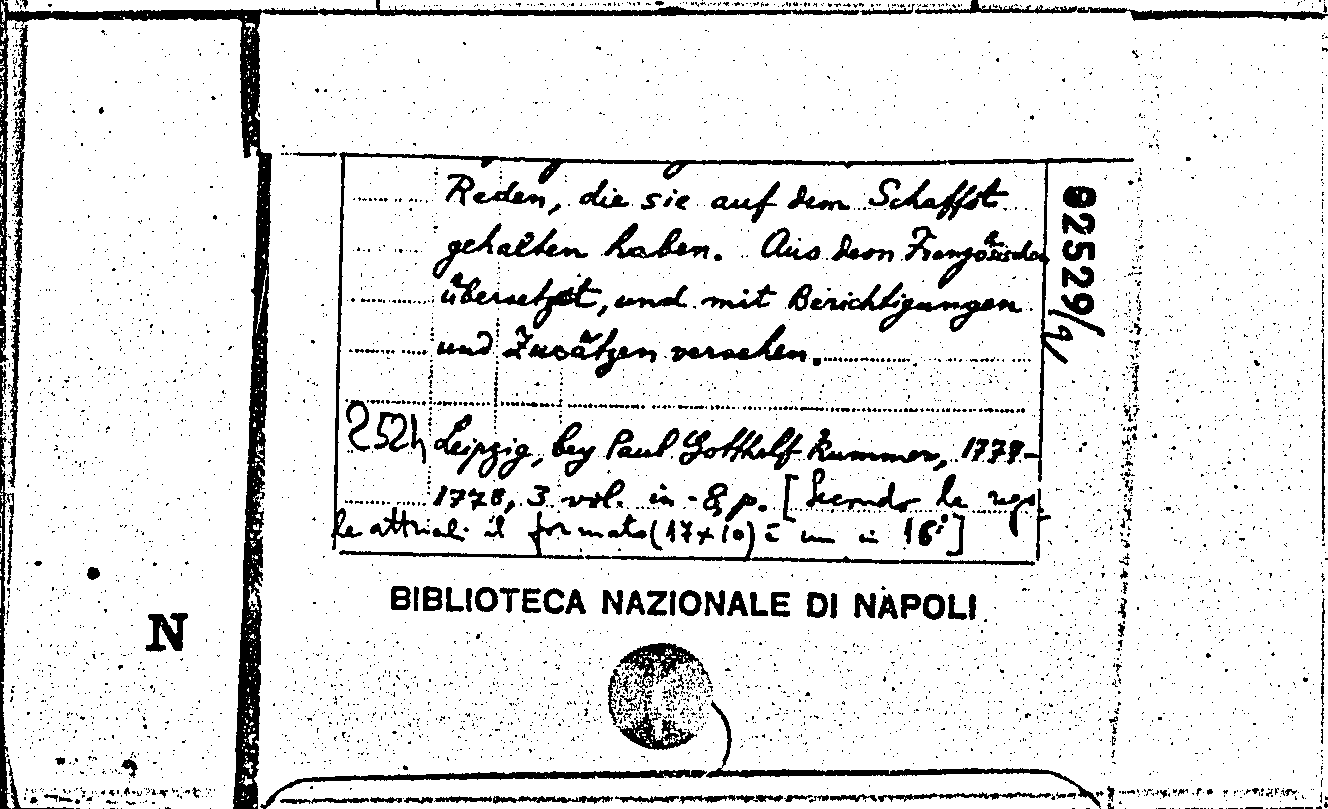 Reden, die sie auf dem Schaffot
gehalten haben. Aus dem Französischen
übersetzt, und mit Berichtigungen
und Zusätzen versehen.
252h Leipzig, bey Paul Gotthelf Kummer, 1778-
1778, 3 vol. in-8 p. [Secondo le rego-
le attuali il formato (17x10) è un in 16°]
02529/
BIBLIOTECA NAZIONALE DI NAPOLI
N